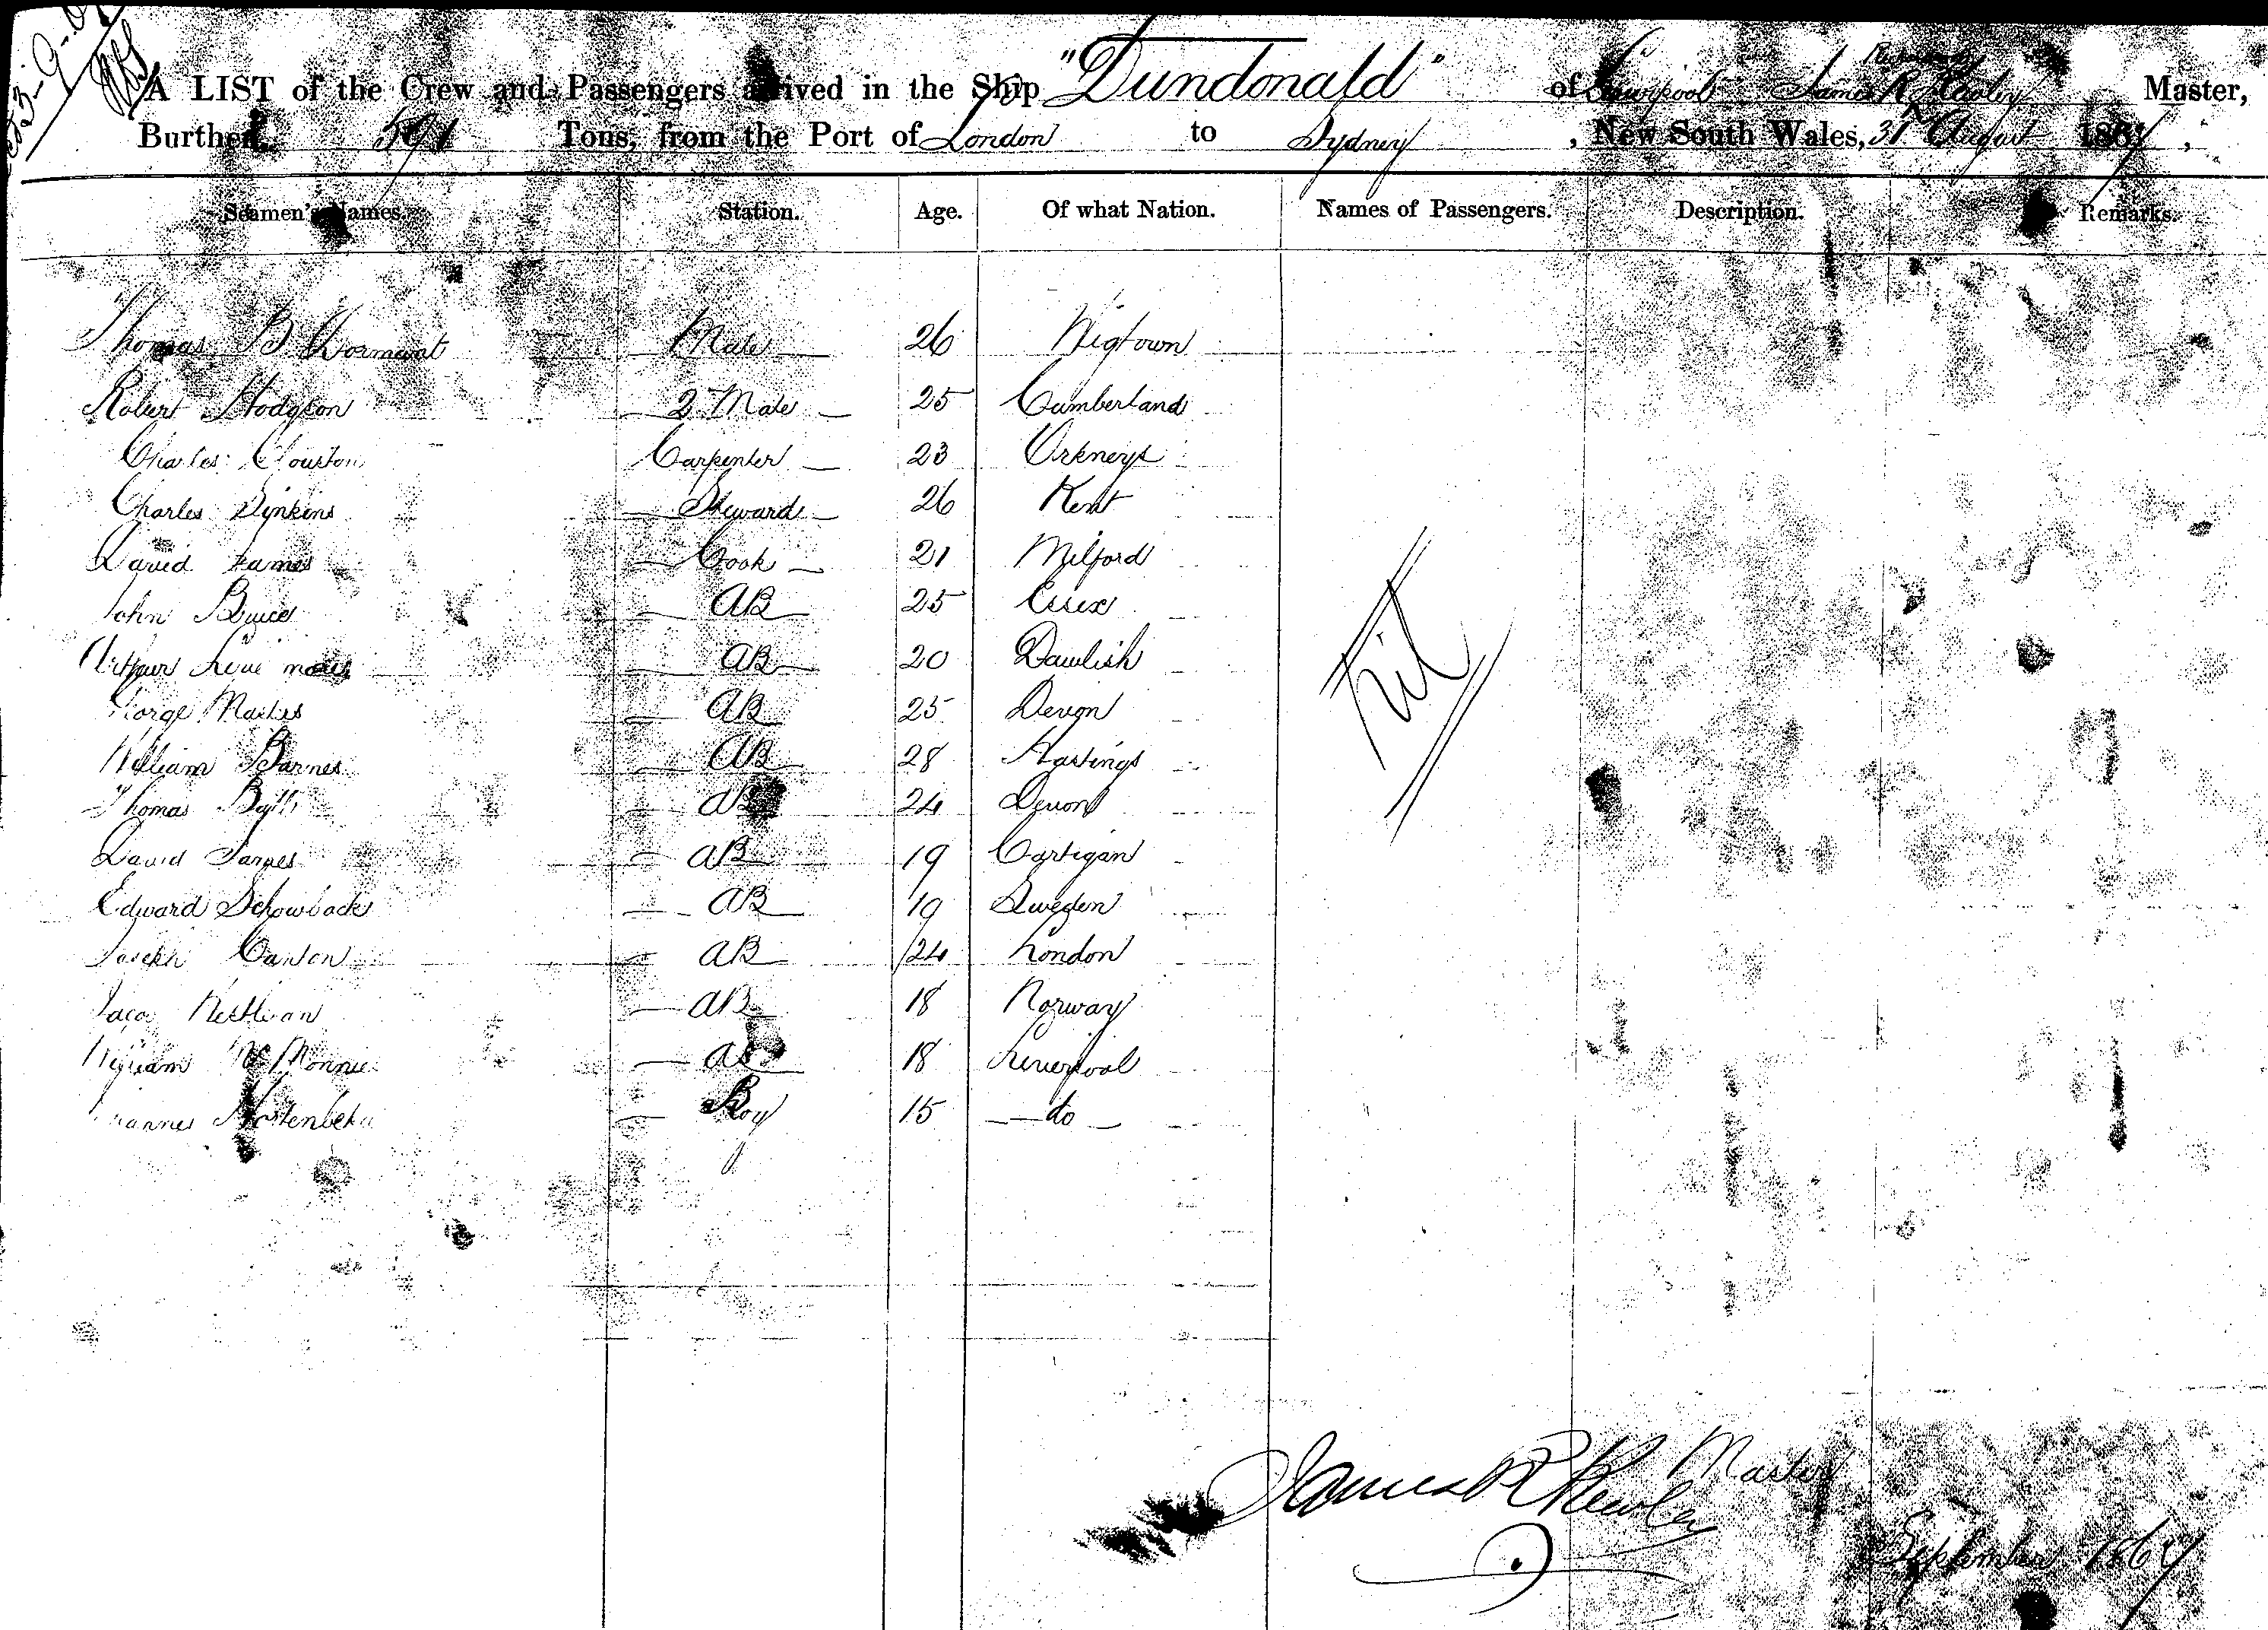 A LIST of the Crew and Passengers arrived in the Ship "Dundonald" of Liverpool James R Master,
Burthen, 591 Tons, from the Port of London to Sydney, New South Wales, 31 August 186
Seamen's Names. Station. Age. Of what Nation. Names of Passengers. Description. Remarks.
Thomas B Mate 26 Wigtown
Robert Hodgson 2 Mate 25 Cumberland
Charles Clouston Carpenter 23 Orkneys
Charles Jinkins Steward 26 Kent
David James Cook 21 Milford
John Bruce AB 25 Essex
Arthur AB 20 Dawlish
George AB 25 Devon
William Barnes AB 28 Hastings
Thomas AB 24 Devon
David James AB 19 Cartigan
Edward AB 19 Sweden
Joseph AB 24 London
AB 18 Norway
William AB 18 Liverpool
Boy 15 do
Nil
James R Kewley Master
September 186